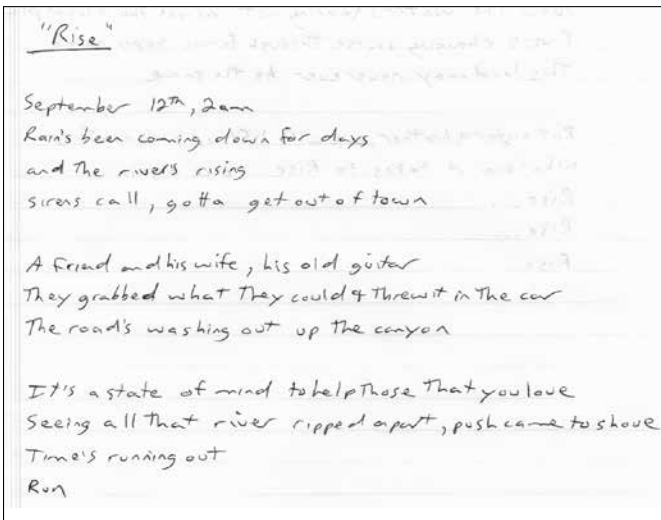 "Rise"
September 12th, 2am
Rain's been coming down for days
and the river's rising
sirens call, gotta get out of town
A friend and his wife, his old guitar
They grabbed what They could & Threw it in The car
The road's washing out up the canyon
It's a state of mind to help Those That you love
Seeing all That river ripped apart, push came to shove
Time's running out
Run